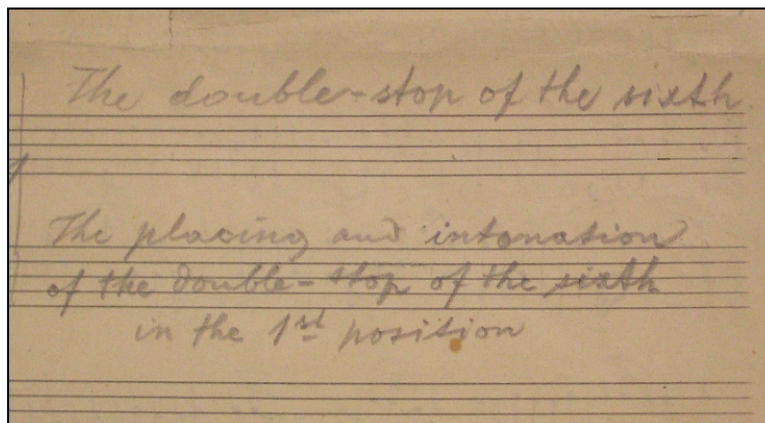 The double-stop of the sixth
The placing and intonation
of the double-stop of the sixth
in the 1st position